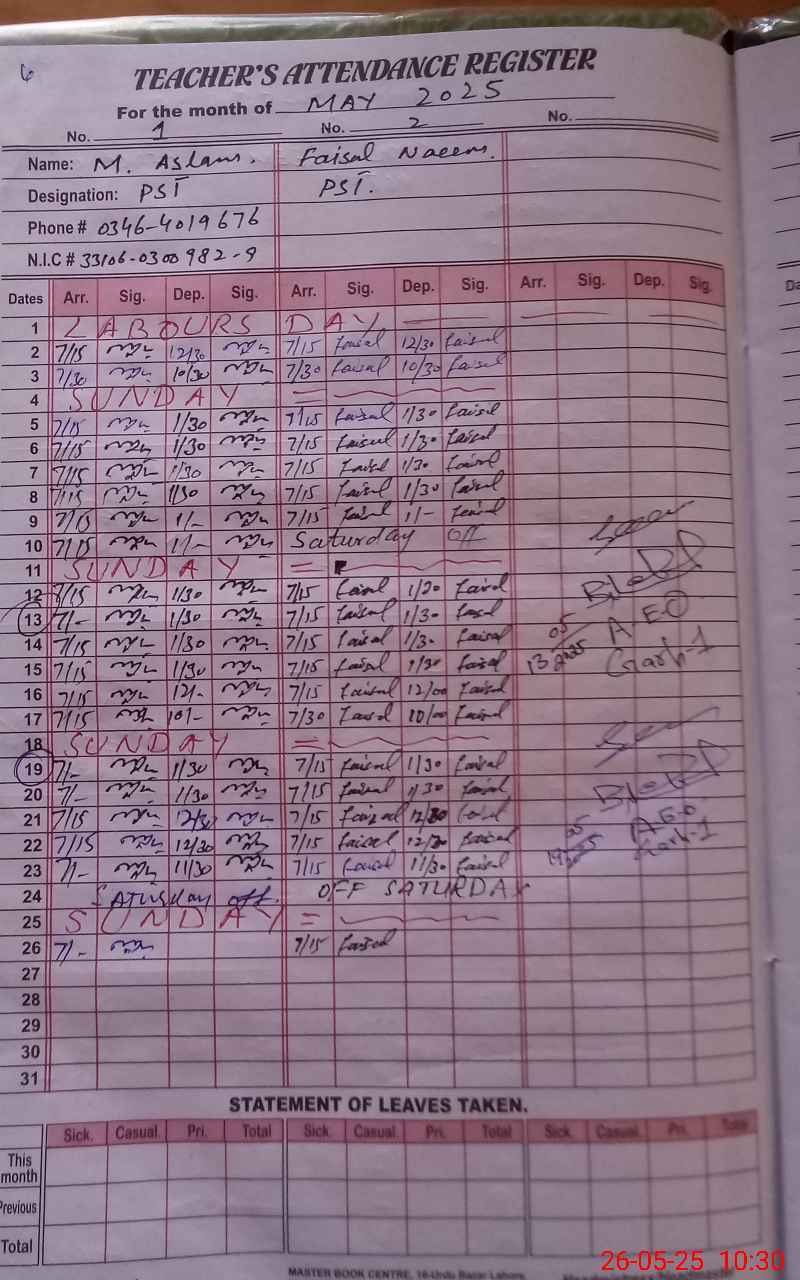 6
TEACHER'S ATTENDANCE REGISTER
For the month of MAY 2025
No. 1 No. 2 No.
Name: M. Aslam. Faisal Naeem.
Designation: PST PST.
Phone # 0346-4019676
N.I.C # 33106-0300982-9
Dates Arr. Sig. Dep. Sig. Arr. Sig. Dep. Sig. Arr. Sig. Dep. Sig.
1 LABOURS DAY
2 7/15 12/30 7/15 Faisal 12/30 Faisal
3 7/30 10/30 7/30 Faisal 10/30 Faisal
4 SUNDAY =
5 7/15 1/30 7/15 Faisal 1/30 Faisal
6 7/15 1/30 7/15 Faisal 1/30 Faisal
7 7/15 1/30 7/15 Faisal 1/30 Faisal
8 7/15 1/30 7/15 Faisal 1/30 Faisal
9 7/15 1/- 7/15 Faisal 1/- Faisal
10 7/15 1/- Saturday off
11 SUNDAY =
12 7/15 1/30 7/15 Faisal 1/30 Faisal
13 7/- 1/30 7/15 Faisal 1/30 Faisal
14 7/15 1/30 7/15 Faisal 1/30 Faisal
A-EO
15 7/15 1/30 7/15 Faisal 1/30 Faisal
13 05 2025 Garh-1
16 7/15 12/- 7/15 Faisal 12/00 Faisal
17 7/15 10/- 7/30 Faisal 10/00 Faisal
18 SUNDAY =
19 7/- 1/30 7/15 Faisal 1/30 Faisal
20 7/- 1/30 7/15 Faisal 1/30 Faisal
21 7/15 12/30 7/15 Faisal 12/30 Faisal
AEO
22 7/15 12/30 7/15 Faisal 12/30 Faisal
Garh-1
23 7/- 11/30 7/15 Faisal 11/30 Faisal
24 Saturday off. OFF SATURDAY
25 SUNDAY =
26 7/- 7/15 Faisal
27
28
29
30
31
STATEMENT OF LEAVES TAKEN.
Sick. Casual. Pri. Total Sick. Casual. Pri. Total Sick. Casual. Pri. Total
This month
Previous
Total
MASTER BOOK CENTRE, 16-Urdu Bazar Lahore
26-05-25 10:30